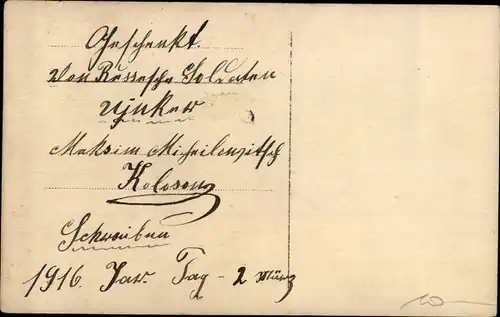 Geschenkt.
Von Russesche Soldaten
Maksim Micheilowitsch
Kolosow
Schreiben
1916. Jar. Tag - 2 März
10